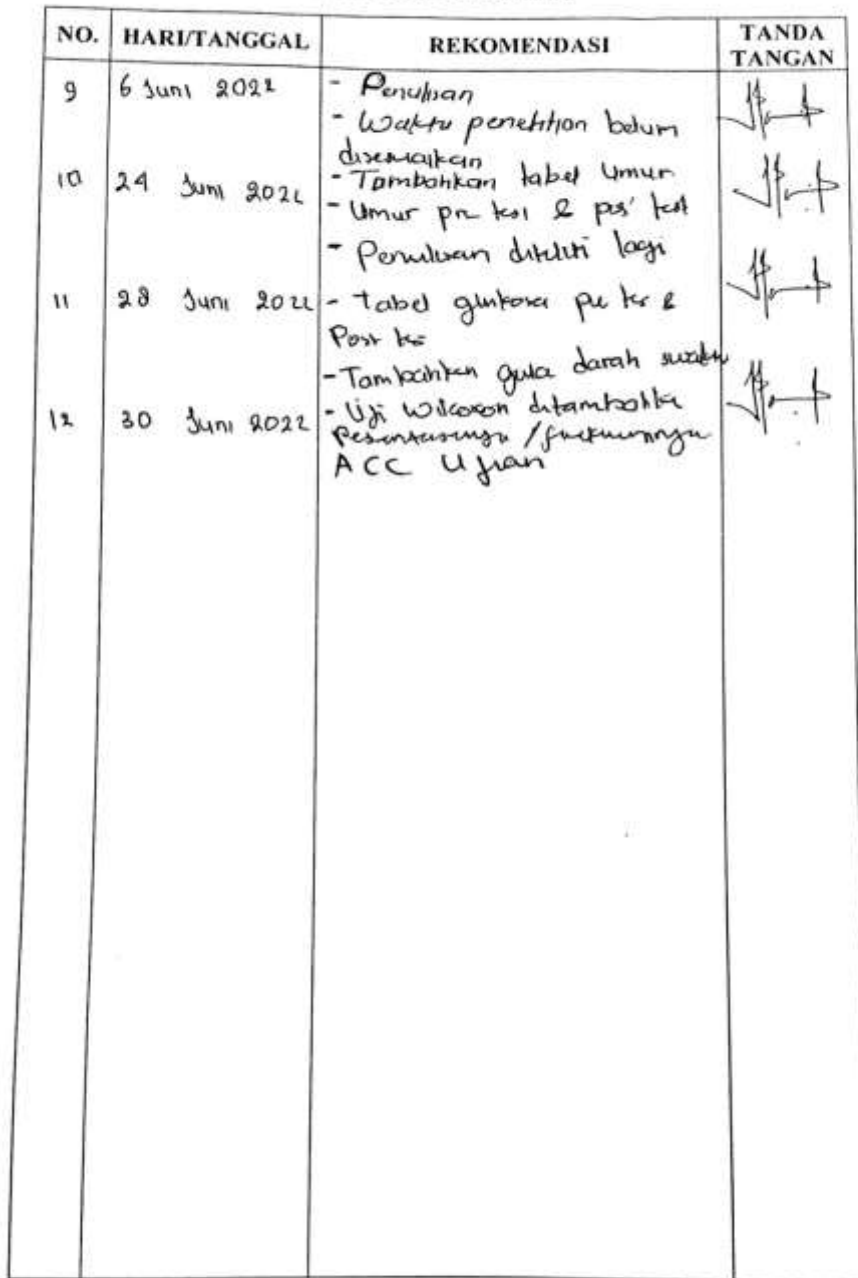 NO. HARI/TANGGAL REKOMENDASI TANDA TANGAN
9 6 Juni 2022 - Penulisan
- Waktu penelitian belum
disesuaikan
10 24 Juni 2022 - Tambahkan tabel Umur
- Umur pre test & pos' test
- Penulisan diteliti lagi
11 28 Juni 2022 - Tabel glukosa pre tes &
Post tes
- Tambahkan gula darah sewaktu
12 30 Juni 2022 - Uji Wilcoxon ditambahka
Persentasenya /
ACC Ujian